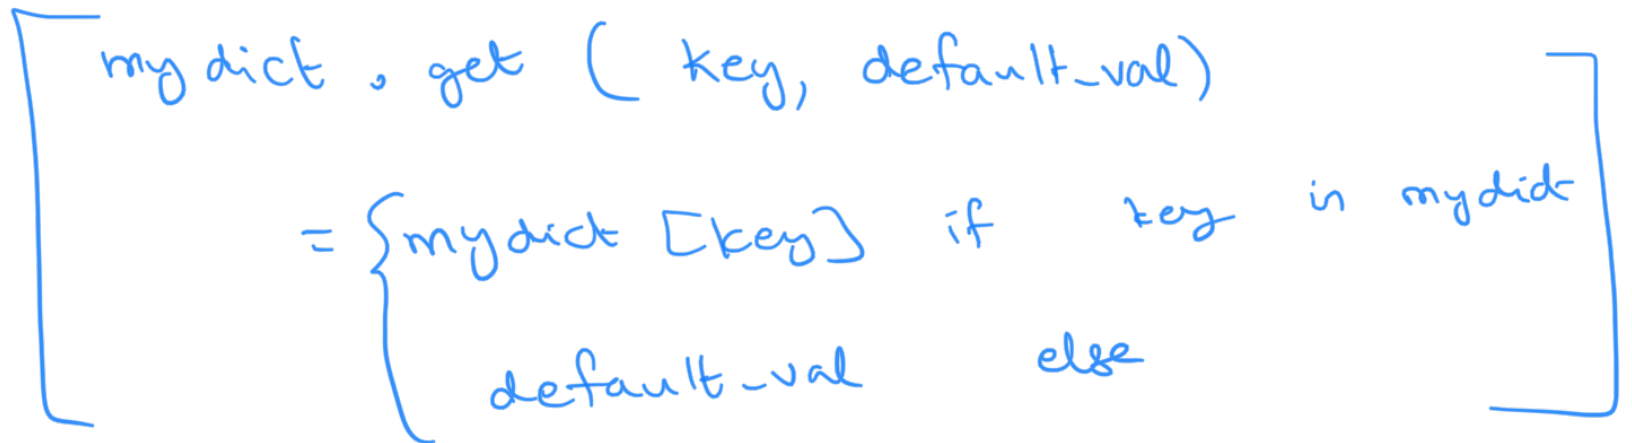 mydict.get (key, default_val)
= { mydict [key] if key in mydict
default_val else